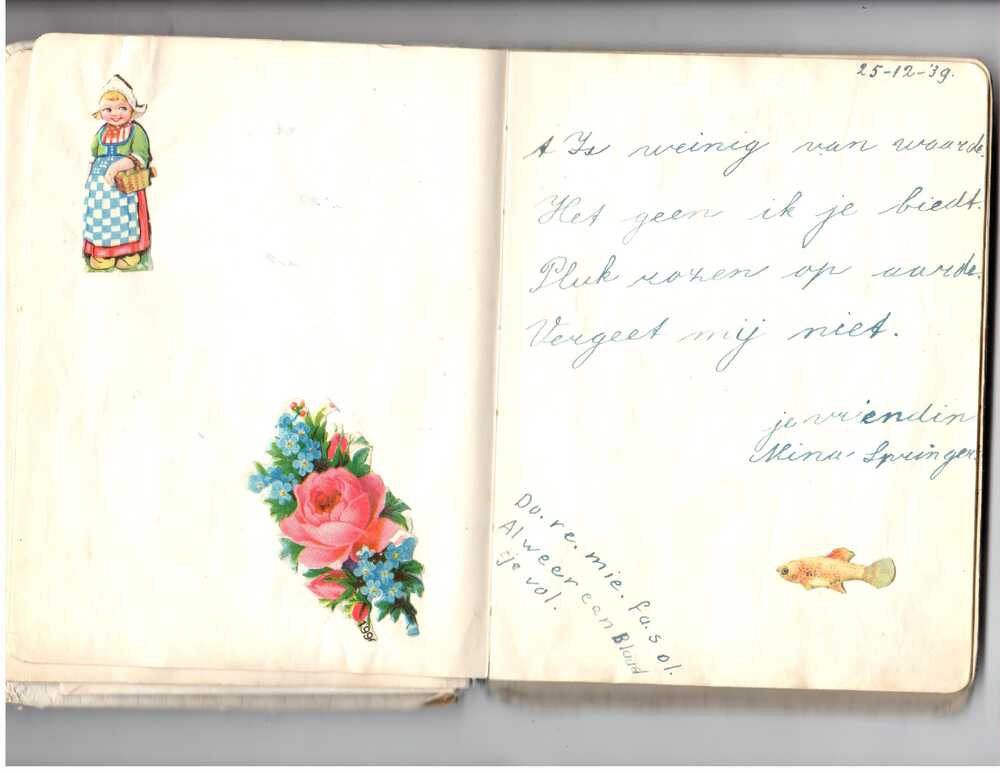 25-12-'39.
t Is weinig van waarde.
Het geen ik je biedt.
Pluk rozen op aarde.
Vergeet mij niet.
je vriendin
Mina Springer
Do. re. mie. fa. sol.
Al weer een Blaad
tje vol.
199